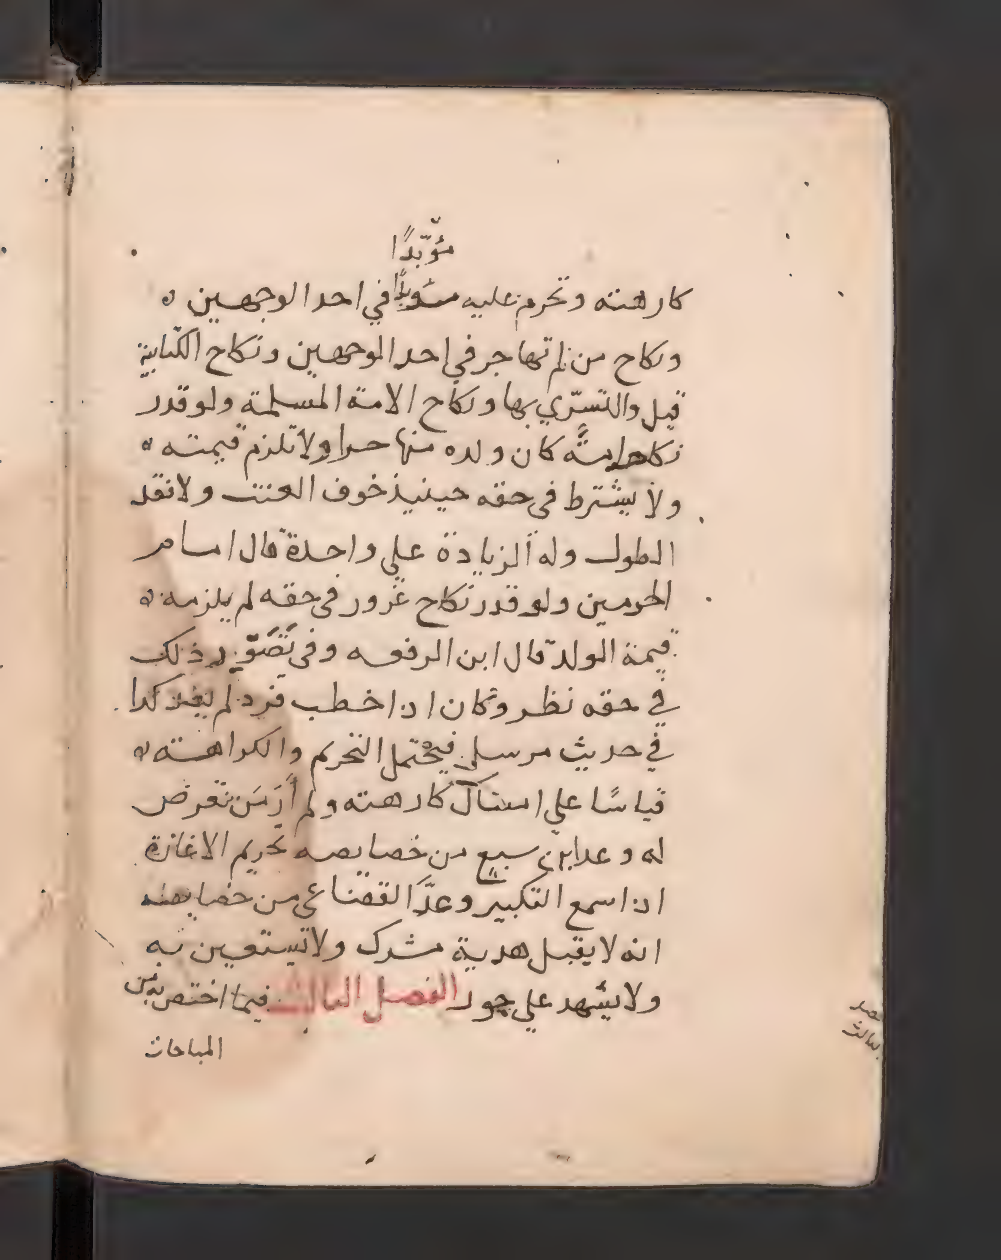 مُؤَبّدًا
كارهته وتحرم عليه مؤبدًا في احد الوجهين ه
ونكاح من لم تهاجر في احد الوجهين ونكاح الكتابية
قيل والتسرّي بها ونكاح الامة المسلمة ولو قدر
نكاح امة كان ولده منها حرا ولا تلزم قيمته ه
ولا يشترط في حقه حينيذ خوف العنت ولا فقد
الطول وله الزيادة علي واحدة قال امام
الحرمين ولو قدر نكاح غرور في حقه لم يلزمه ه
قيمة الولد قال ابن الرفعه وفي تصوّر ذلك
في حقه نظر وكان اذا خطب فرد لم يعد كذا
في حديث مرسل فيحتمل التحريم والكراهته ه
قياسًا علي امساك كارهته ولم أرَ مَن تعرض
له وعد ابن سبع من خصايصه تحريم الاغارة
اذا سمع التكبير وعدّ القضاعي من خصايصه
انه لا يقبل هدية مشرك ولا يستعين به
ولا يشهد علي جور الفصل الثالث فيما اختص به من
المباحات
الثالث